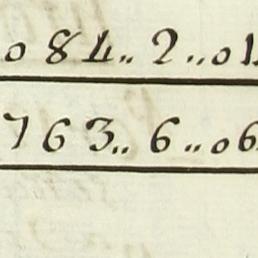 084.. 2..01
763.. 6..06